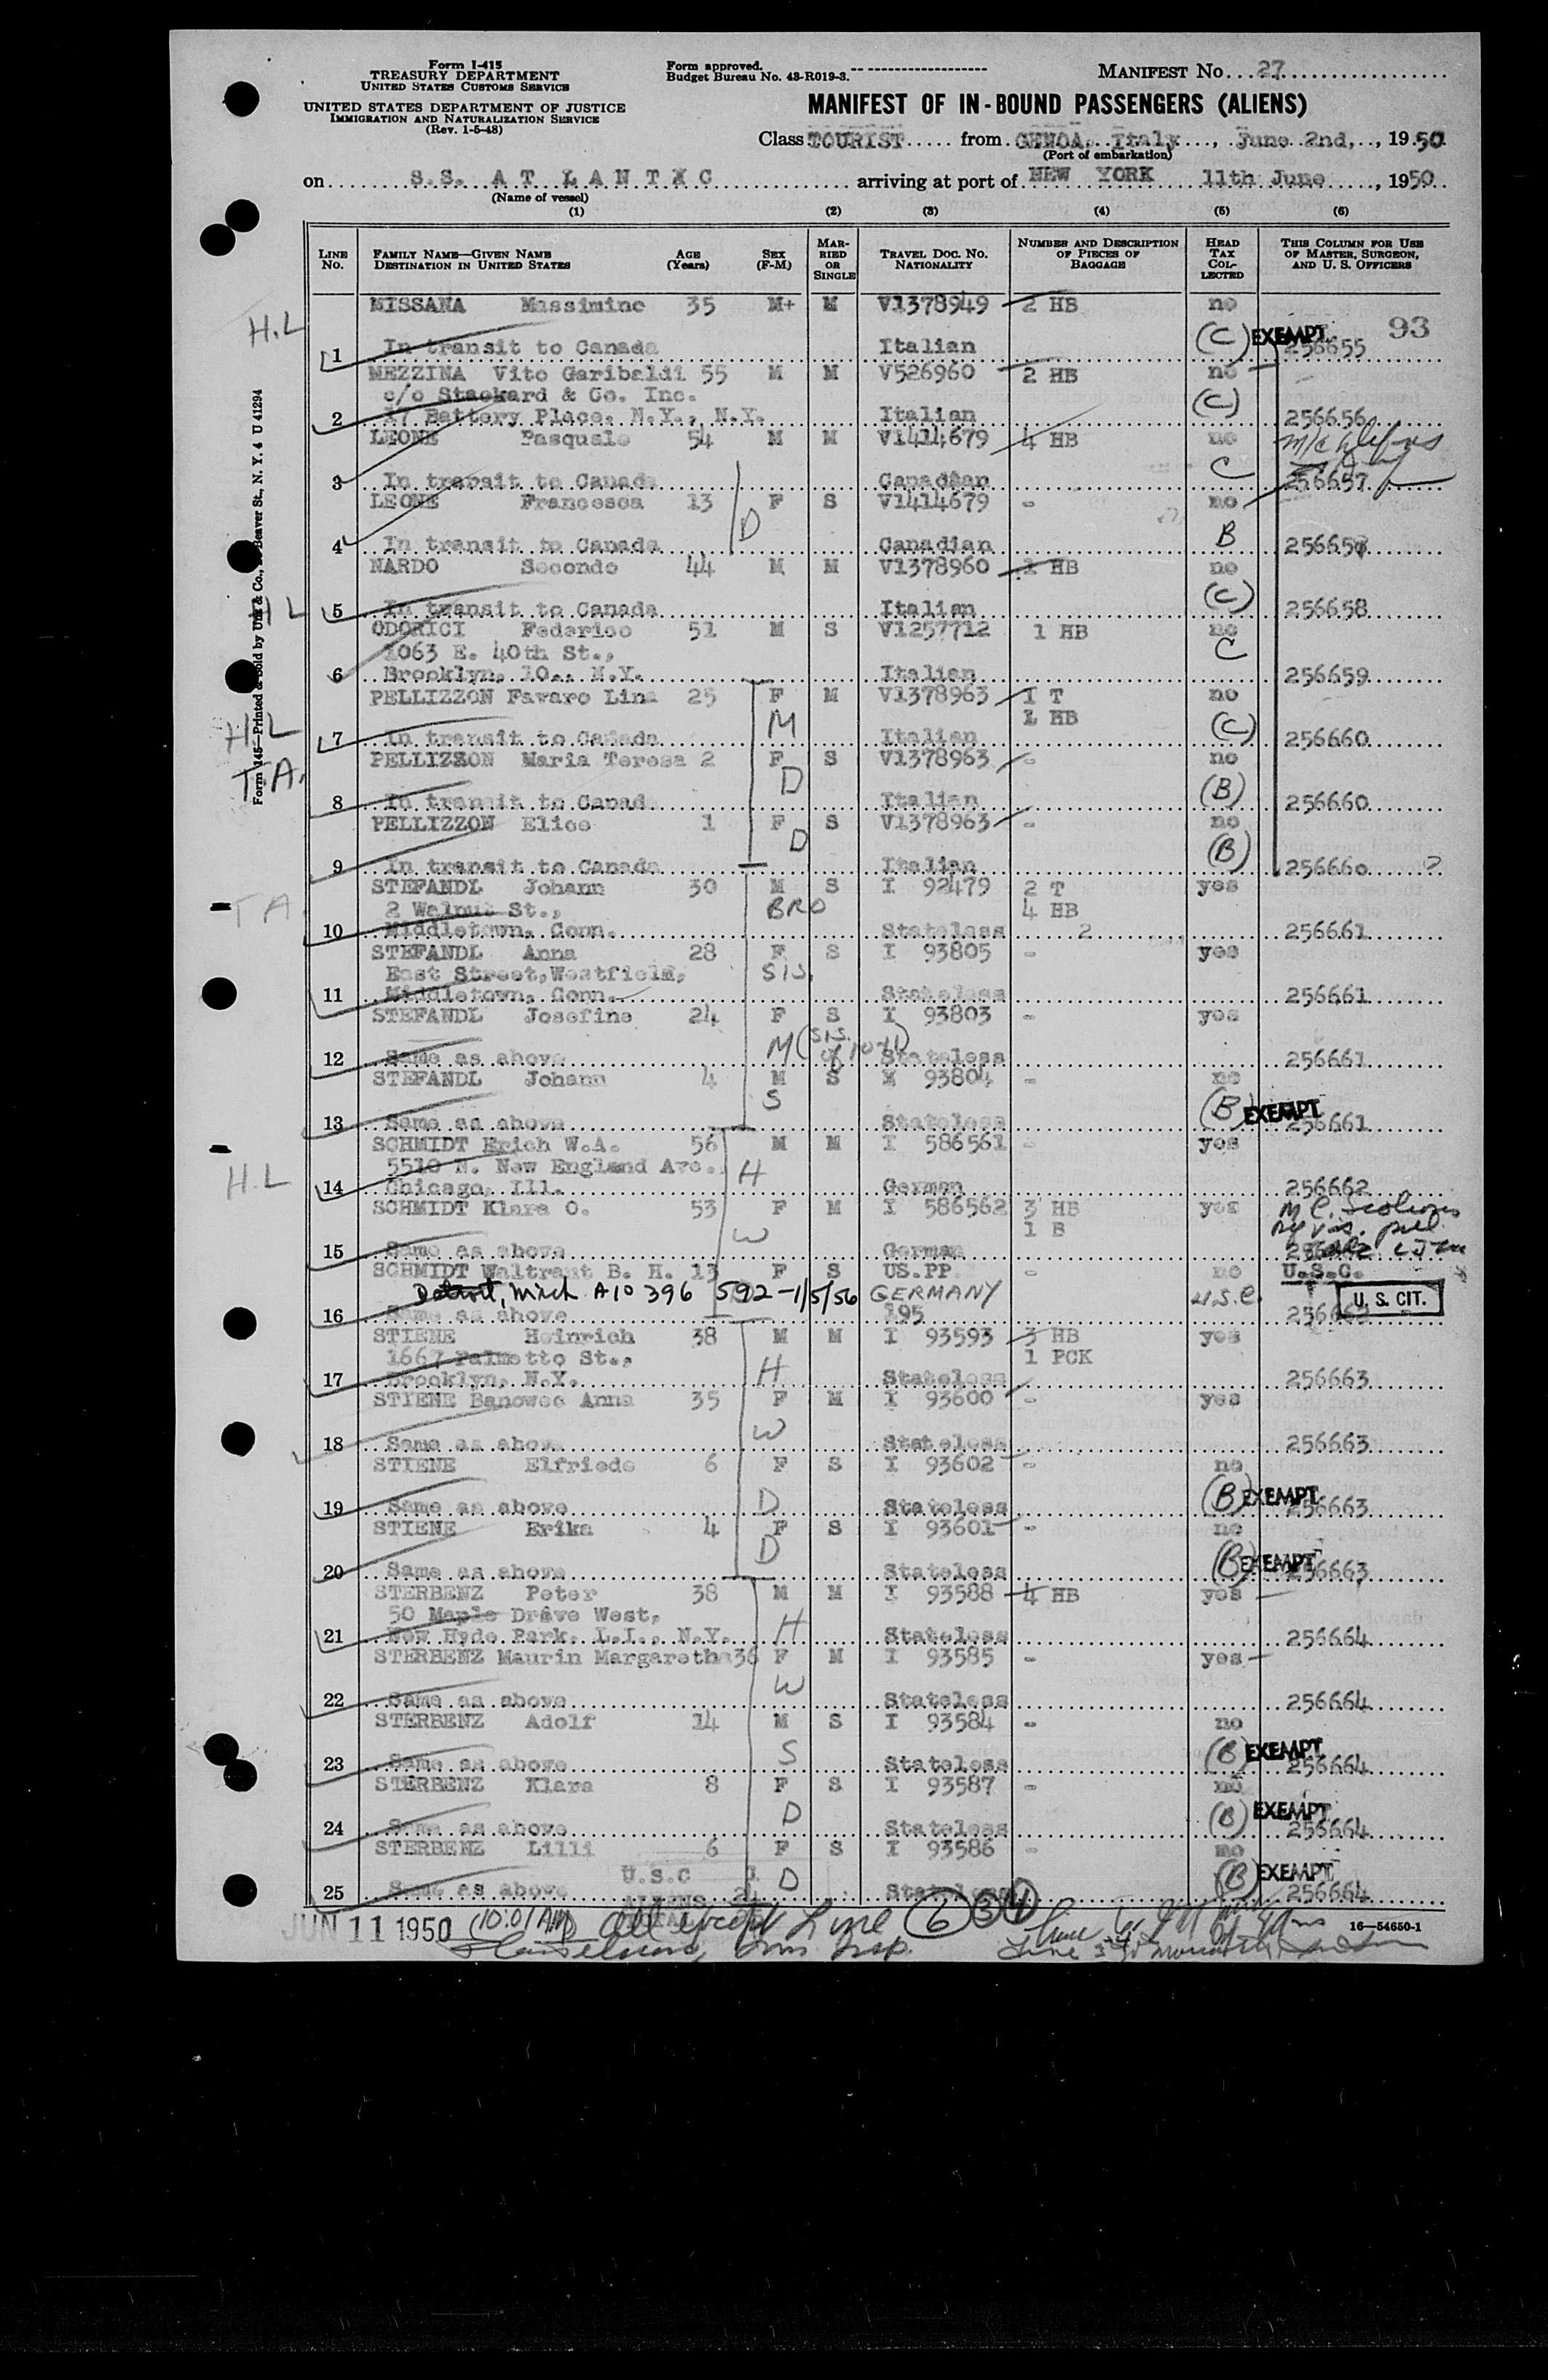 Form I-415
TREASURY DEPARTMENT
UNITED STATES CUSTOMS SERVICE
UNITED STATES DEPARTMENT OF JUSTICE
IMMIGRATION AND NATURALIZATION SERVICE
(Rev. 1-5-48)
Form approved.
Budget Bureau No. 43-R019-3.
MANIFEST No. 27
MANIFEST OF IN-BOUND PASSENGERS (ALIENS)
Class TOURIST from GENOA, Italy, June 2nd, 1950
(Port of embarkation)
on S.S. ATLANTIC arriving at port of NEW YORK 11th June, 1950
(Name of vessel)
(1) (2) (3) (4) (5) (6)
LINE No. FAMILY NAME—GIVEN NAME DESTINATION IN UNITED STATES AGE (Years) SEX (F-M) MARRIED OR SINGLE TRAVEL DOC. NO. NATIONALITY NUMBER AND DESCRIPTION OF PIECES OF BAGGAGE HEAD TAX COLLECTED THIS COLUMN FOR USE OF MASTER, SURGEON, AND U. S. OFFICERS
MISSANA Massimino 35 M+ M V1378949 2 HB no
H.L (C) EXEMPT 93
1 In transit to Canada Italian 256655
MEZZINA Vito Garibaldi 55 M M V526960 2 HB no
c/o Stackard & Co. Inc. (C)
2 17 Battery Place, N.Y., N.Y. Italian 256656
LEONE Pasquale 54 M M V1414679 4 HB no
C
3 In transit to Canada Canadian 256657
LEONE Francesca 13 F S V1414679 - no
D B
4 In transit to Canada Canadian 256657
NARDO Secondo 44 M M V1378960 1 HB no
H L (C)
5 In transit to Canada Italian 256658
ODORICI Federico 51 M S V1257712 1 HB no
1063 E. 40th St., C
6 Brooklyn, 10., N.Y. Italian 256659
PELLIZZON Favaro Lina 25 F M V1378963 1 T no
1 HB
H.L M (C)
7 In transit to Canada Italian 256660
PELLIZZON Maria Teresa 2 F S V1378963 - no
T.A. D (B)
8 In transit to Canad Italian 256660
PELLIZZON Elice 1 F S V1378963 - no
D (B)
9 In transit to Canada Italian 256660 ?
STEFANDL Johann 30 M S I 92479 2 T yes
T A 2 Walnut St., BRO 4 HB
10 Middletown, Conn. Stateless 2 256661
STEFANDL Anna 28 F S I 93805 - yes
East Street, Westfield, SIS.
11 Middletown, Conn. Stateless 256661
STEFANDL Josefine 24 F S I 93803 - yes
M (SIS. of 10-11)
12 Same as above Stateless 256661
STEFANDL Johann 4 M S I 93804 - no
S (B) EXEMPT
13 Same as above Stateless 256661
SCHMIDT Erich W.A. 56 M M I 586561 - yes
H.L 5510 N. New England Ave. H
14 Chicago, Ill. German 256662
SCHMIDT Klara O. 53 F M I 586562 3 HB yes
1 B
W
15 Same as above German 256662
SCHMIDT Waltraut B. H. 13 F S US.PP. - no U.S.C.
Detroit, Mich A10 396 592 -1/5/56 GERMANY U.S.C. U. S. CIT.
16 Same as above 195 256662
STIENE Heinrich 38 M M I 93593 3 HB yes
1667 Palmetto St., H 1 PCK
17 Brooklyn, N.Y. Stateless 256663
STIENE Banowec Anna 35 F M I 93600 - yes
W
18 Same as above Stateless 256663
STIENE Elfriede 6 F S I 93602 - no
D (B) EXEMPT
19 Same as above Stateless 256663
STIENE Erika 4 F S I 93601 - no
D (B) EXEMPT
20 Same as above Stateless 256663
STERBENZ Peter 38 M M I 93588 4 HB yes
50 Maple Drive West, H
21 New Hyde Park, L.I., N.Y. Stateless 256664
STERBENZ Maurin Margaretha 36 F M I 93585 - yes
W
22 Same as above Stateless 256664
STERBENZ Adolf 14 M S I 93584 - no
S (B) EXEMPT
23 Same as above Stateless 256664
STERBENZ Klara 8 F S I 93587 - no
D (B) EXEMPT
24 Same as above Stateless 256664
STERBENZ Lilli 6 F S I 93586 - no
U.S.C 1 D (B) EXEMPT
25 Same as above Stateless 256664
ALIENS 24
JUN 11 1950 (10:01 AM) All except Line 6 3 4
16—54650-1